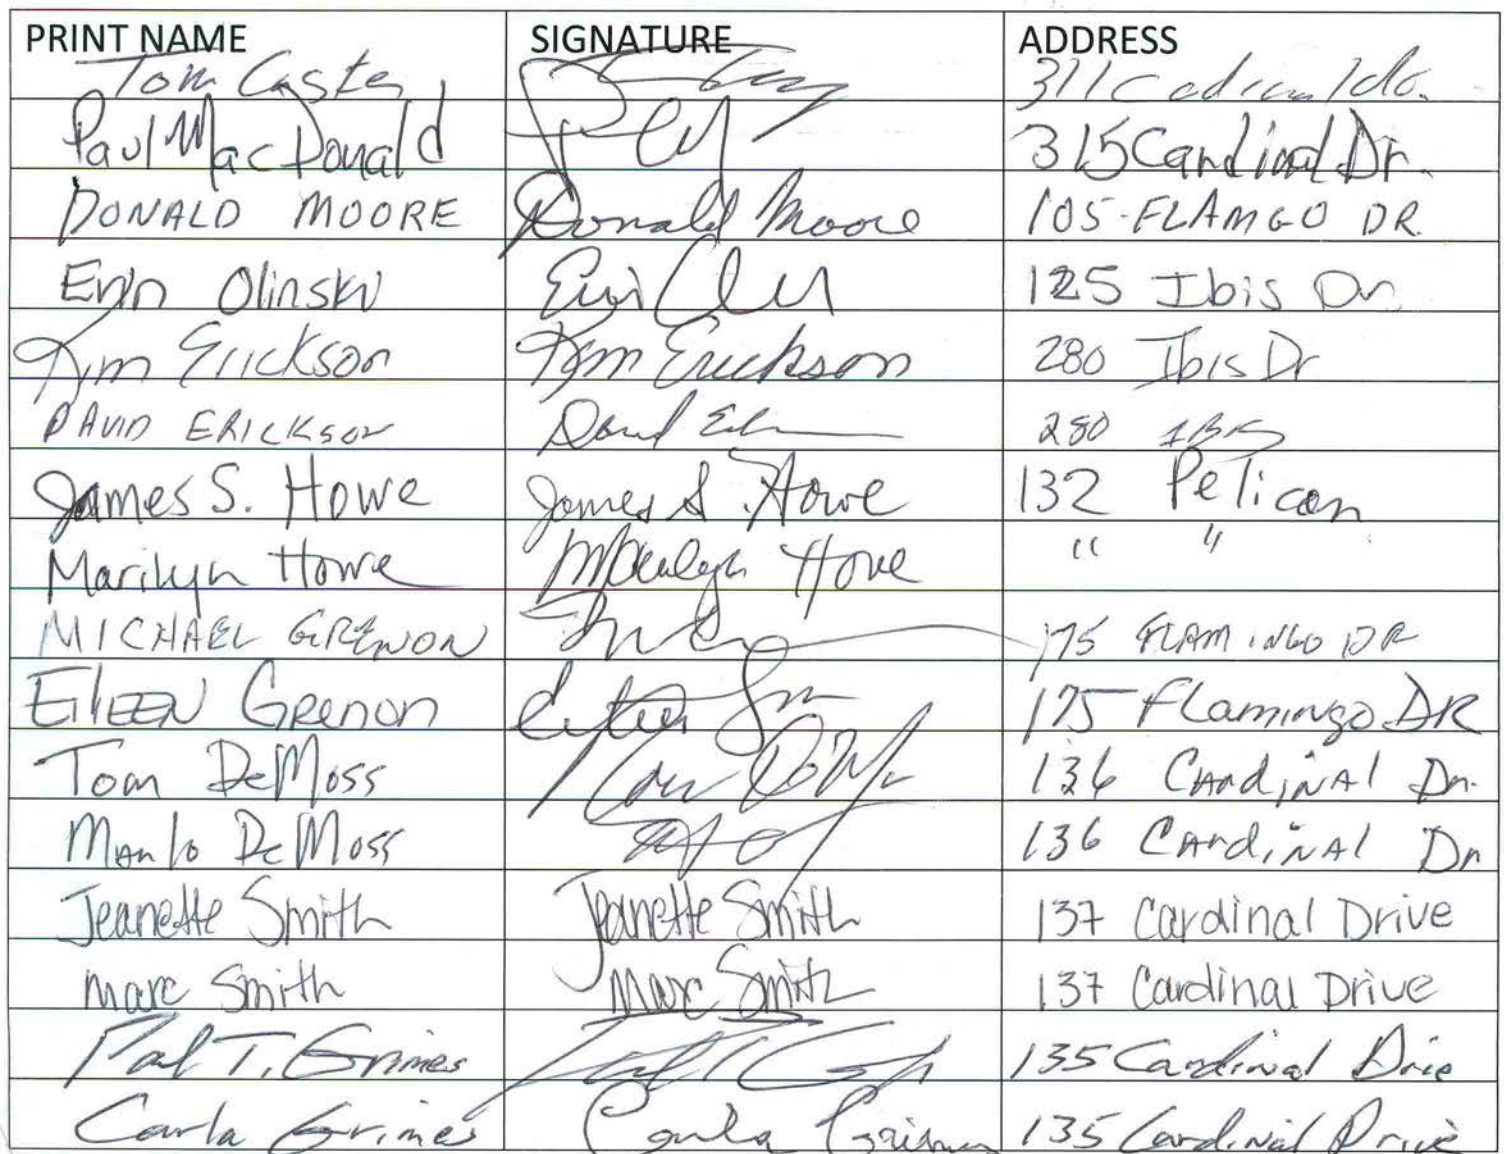 PRINT NAME SIGNATURE ADDRESS
Tom Caster 311 Cardinal Dr.
Paul MacDonald 315 Cardinal Dr.
DONALD MOORE Donald Moore 105-FLAMGO DR.
Erin Olinski Erin 125 Ibis Dr.
Kim Erickson Kim Erickson 280 Ibis Dr
DAVID ERICKSON David 280 IBIS
James S. Howe James S. Howe 132 Pelican
Marilyn Howe Marilyn Howe " "
MICHAEL GRENON 175 FLAMINGO DR
EILEEN GRENON 175 Flamingo DR
Tom DeMoss 136 CArdiNAl Dr.
DeMoss 136 CArdiNAl Dr
Jeanette Smith Jeanette Smith 137 Cardinal Drive
Marc Smith Marc Smith 137 Cardinal Drive
Paul T. Grimes 135 Cardinal Drive
Carla Grimes Carla Grimes 135 Cardinal Drive